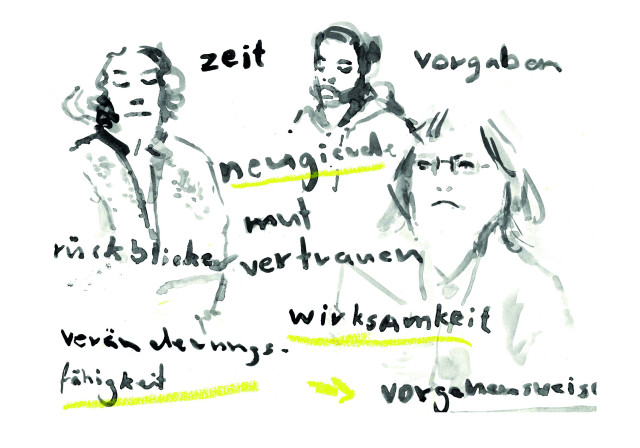 zeit
vorgaben
neugierde
mut
rückblicke vertrauen
wirksamkeit
veränderungs-
fähigkeit
vorgehensweise